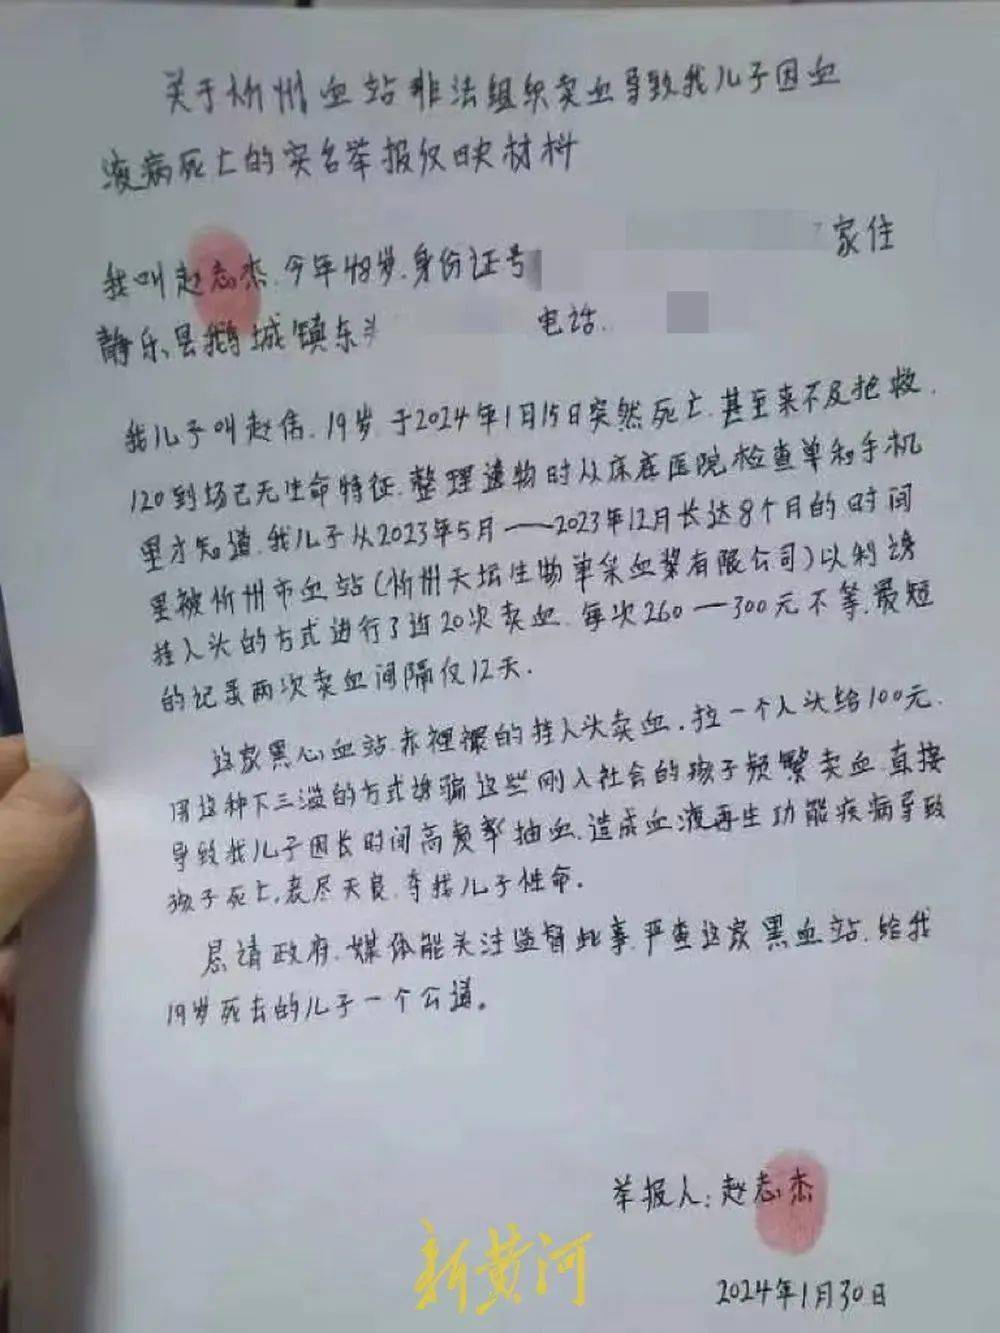 关于忻州血站非法组织卖血导致我儿子因血
液病死亡的实名举报反映材料
我叫赵志杰.今年48岁.身份证号
家住
静乐县鹅城镇东
电话.
我儿子叫赵伟.19岁.于2024年1月15日突然死亡.甚至来不及抢救.
120到场已无生命特征.整理遗物时从床底医院检查单和手机
里才知道.我儿子从2023年5月——2023年12月长达8个月的时间
里被忻州市血站(忻州天坛生物单采血浆有限公司)以利诱
挂人头的方式进行了近20次卖血.每次260—300元不等.最短
的记录两次卖血间隔仅12天.
这家黑心血站.赤裡裡的挂人头卖血.拉一个人头给100元.
用这种下三滥的方式诱骗这些刚入社会的孩子频繁卖血.直接
导致我儿子因长时间高频率抽血.造成血液再生功能疾病导致
孩子死亡,丧尽天良.夺我儿子性命.
恳请政府.媒体能关注监督此事.严查这家黑血站.给我
19岁死去的儿子一个公道。
举报人:赵志杰
新黄河
2024年1月30日